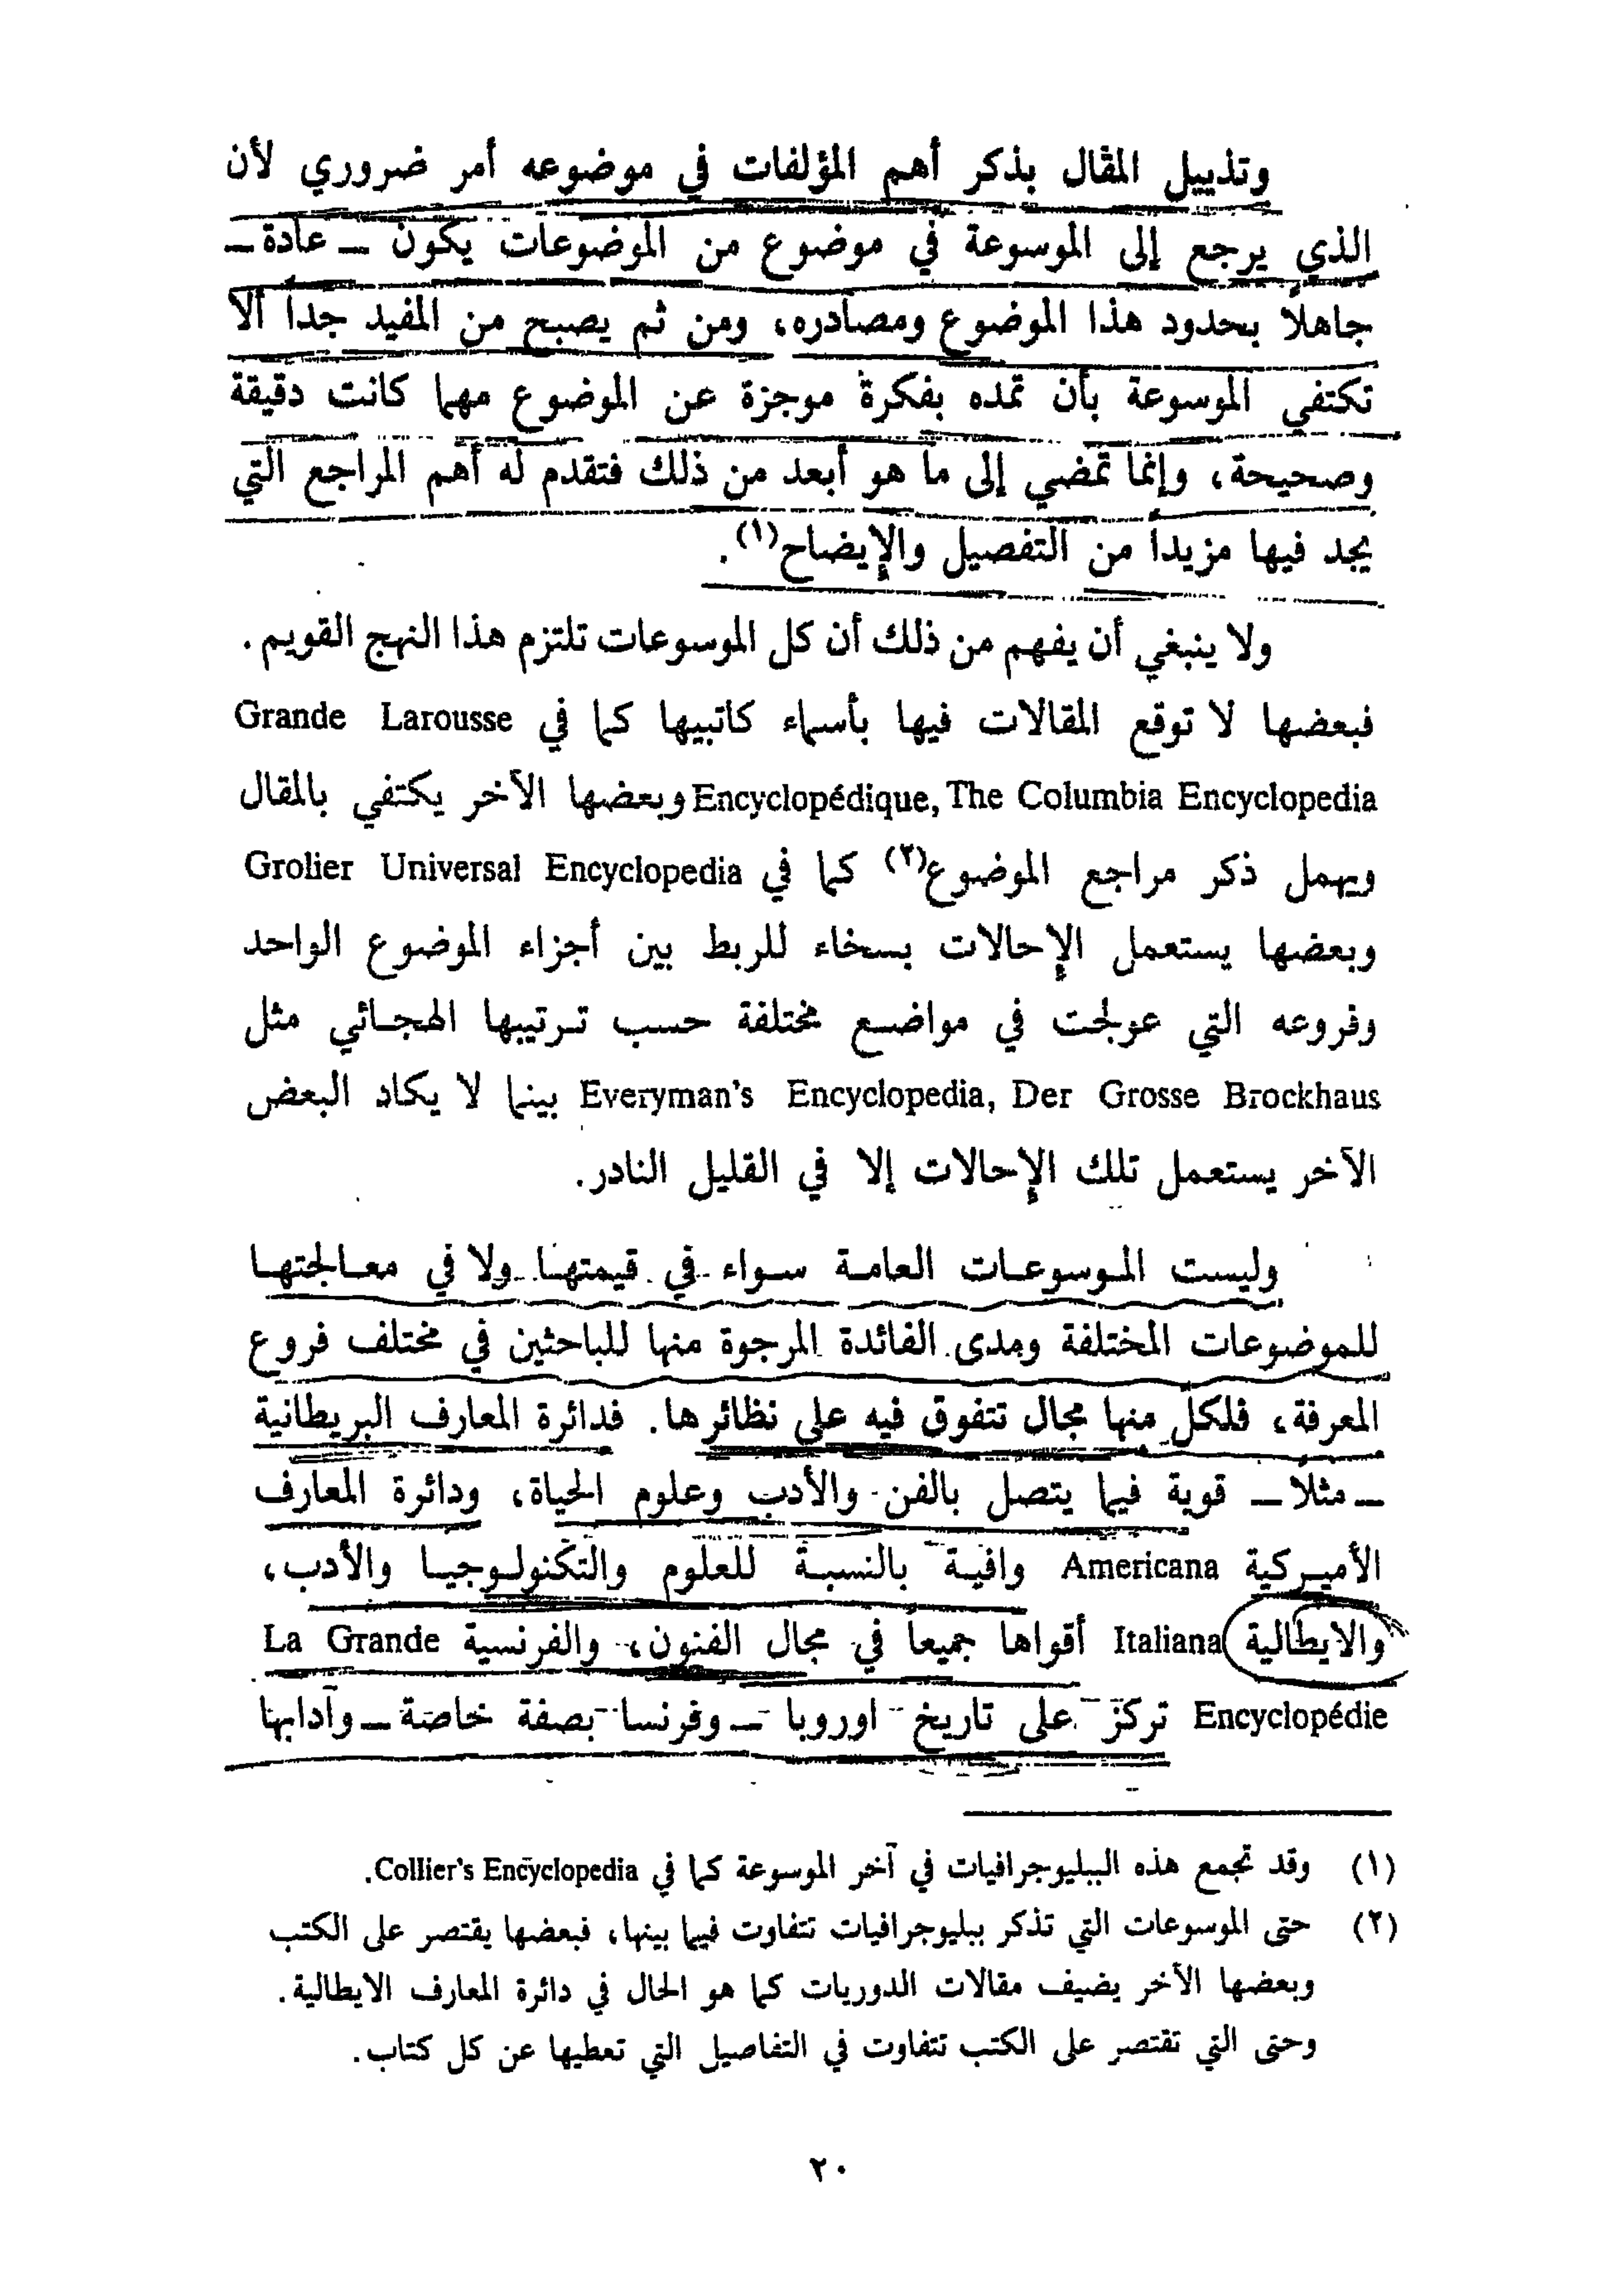 وتذييل المقال بذكر أهم المؤلفات في موضوعه أمر ضروري لأن
الذي يرجع إلى الموسوعة في موضوع من الموضوعات يكون – عادة –
جاهلاً بحدود هذا الموضوع ومصادره، ومن ثم يصبح من المفيد جداً ألا
تكتفي الموسوعة بأن تمده بفكرة موجزة عن الموضوع مهما كانت دقيقة
وصحيحة، وإنما تمضي إلى ما هو أبعد من ذلك فتقدم له أهم المراجع التي
يجد فيها مزيداً من التفصيل والإيضاح(١).
ولا ينبغي أن يفهم من ذلك أن كل الموسوعات تلتزم هذا النهج القويم.
فبعضها لا توقع المقالات فيها بأسماء كاتبيها كما في Grande Larousse
Encyclopédique, The Columbia Encyclopedia وبعضها الآخر يكتفي بالمقال
ويهمل ذكر مراجع الموضوع(٢) كما في Grolier Universal Encyclopedia
وبعضها يستعمل الإحالات بسخاء للربط بين أجزاء الموضوع الواحد
وفروعه التي عولجت في مواضع مختلفة حسب ترتيبها الهجائي مثل
Everyman's Encyclopedia, Der Grosse Brockhaus بينما لا يكاد البعض
الآخر يستعمل تلك الإحالات إلا في القليل النادر.
وليست الموسوعات العامة سواء في قيمتها ولا في معالجتها
للموضوعات المختلفة ومدى الفائدة المرجوة منها للباحثين في مختلف فروع
المعرفة، فلكل منها مجال تتفوق فيه على نظائرها. فدائرة المعارف البريطانية
– مثلاً – قوية فيما يتصل بالفن والأدب وعلوم الحياة، ودائرة المعارف
الأميركية Americana وافية بالنسبة للعلوم والتكنولوجيا والأدب،
والايطالية Italiana أقواها جميعاً في مجال الفنون، والفرنسية La Grande
Encyclopédie تركز على تاريخ اوروبا – وفرنسا بصفة خاصة – وآدابها
(١) وقد تجمع هذه الببليوجرافيات في آخر الموسوعة كما في Collier's Encyclopedia.
(٢) حتى الموسوعات التي تذكر ببليوجرافيات تتفاوت فيما بينها، فبعضها يقتصر على الكتب
وبعضها الآخر يضيف مقالات الدوريات كما هو الحال في دائرة المعارف الايطالية.
وحتى التي تقتصر على الكتب تتفاوت في التفاصيل التي تعطيها عن كل كتاب.
٢٠